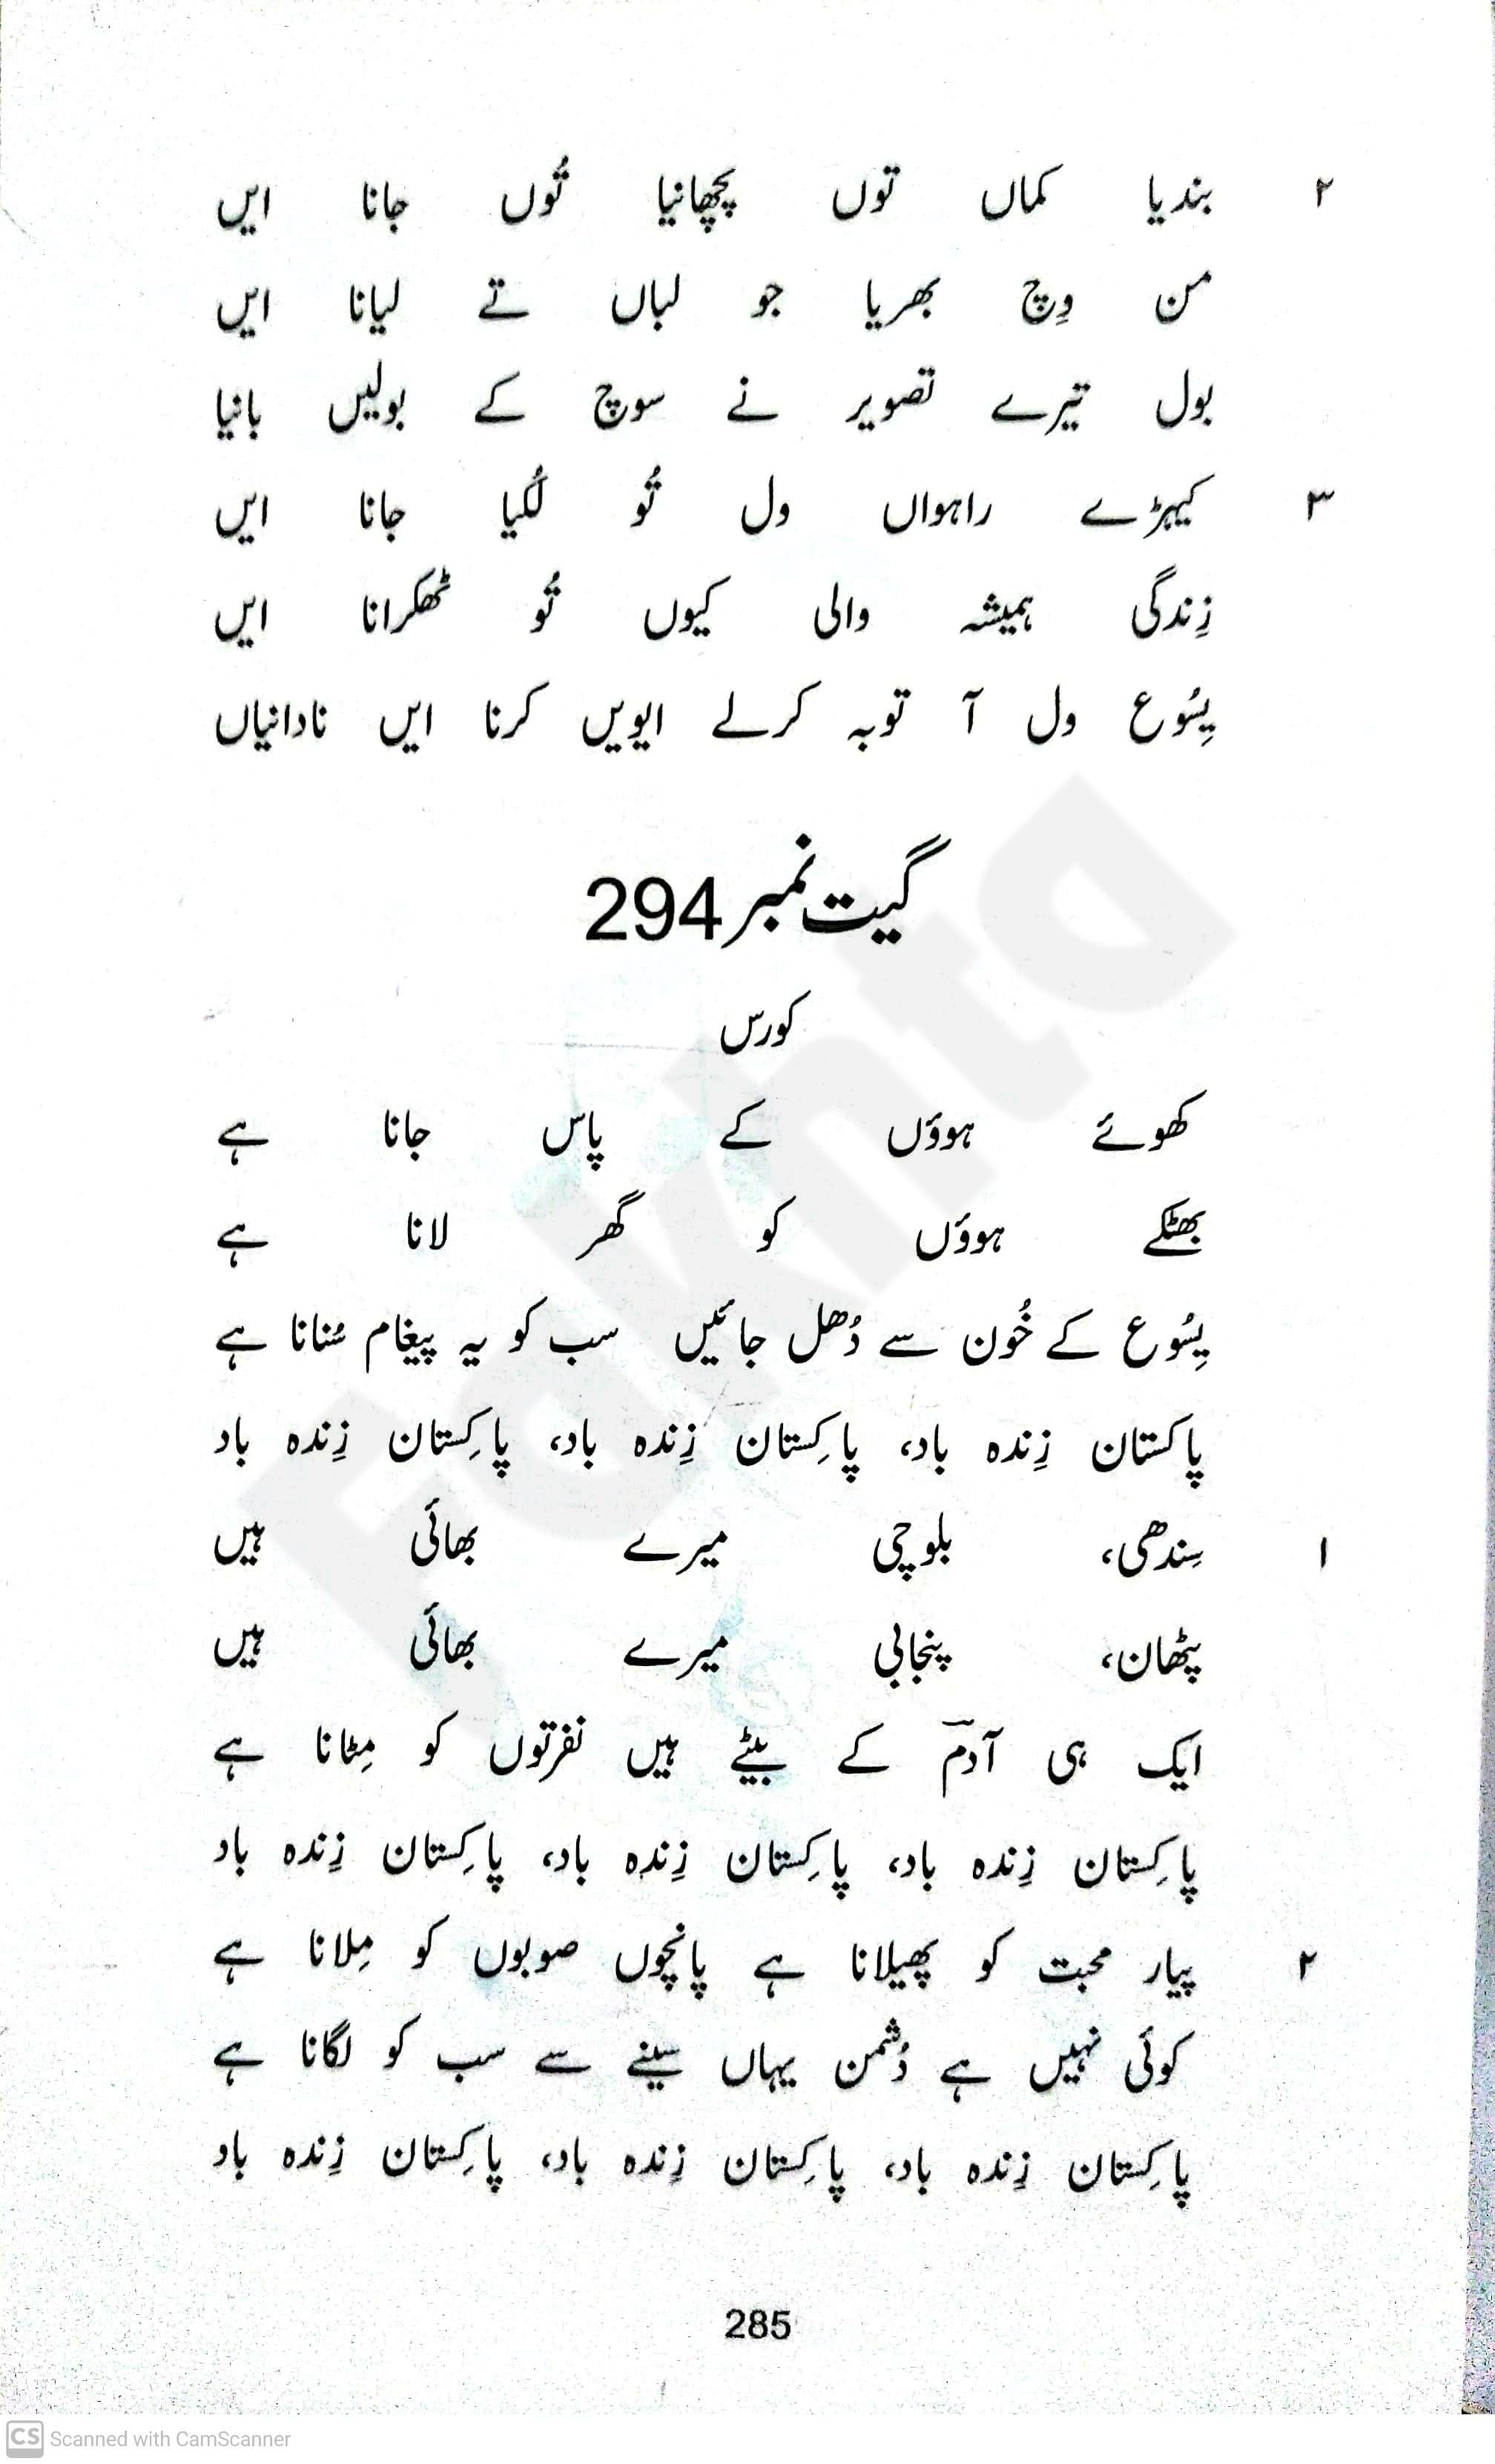 ۲ بندیا کماں توں پچھانیا تُوں جانا ایں
من وِچ بھریا جو لباں تے لیانا ایں
بول تیرے تصویر نے سوچ کے بولیں بانیا
۳ کیہڑے راہواں ول تُو لُکیا جانا ایں
زِندگی ہمیشہ والی کیوں تُو ٹھکرانا ایں
یِسُوع ول آ توبہ کرلے ایویں کرنا ایں نادانیاں
گیت نمبر 294
کورس
کھوئے ہوؤں کے پاس جانا ہے
بھٹکے ہوؤں کو گھر لانا ہے
یِسُوع کے خُون سے دُھل جائیں سب کو یہ پیغام سُنانا ہے
پاکستان زِندہ باد، پاکِستان زِندہ باد، پاکِستان زِندہ باد
۱ سِندھی، بلوچی میرے بھائی ہیں
پٹھان، پنجابی میرے بھائی ہیں
ایک ہی آدمؔ کے بیٹے ہیں نفرتوں کو مِٹانا ہے
پاکِستان زِندہ باد، پاکِستان زِندہ باد، پاکِستان زِندہ باد
۲ پیار محبت کو پھیلانا ہے پانچوں صوبوں کو مِلانا ہے
کوئی نہیں ہے دُشمن یہاں سینے سے سب کو لگانا ہے
پاکِستان زِندہ باد، پاکِستان زِندہ باد، پاکِستان زِندہ باد
285
Fakhta
CS Scanned with CamScanner